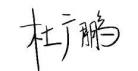 杜广鹏